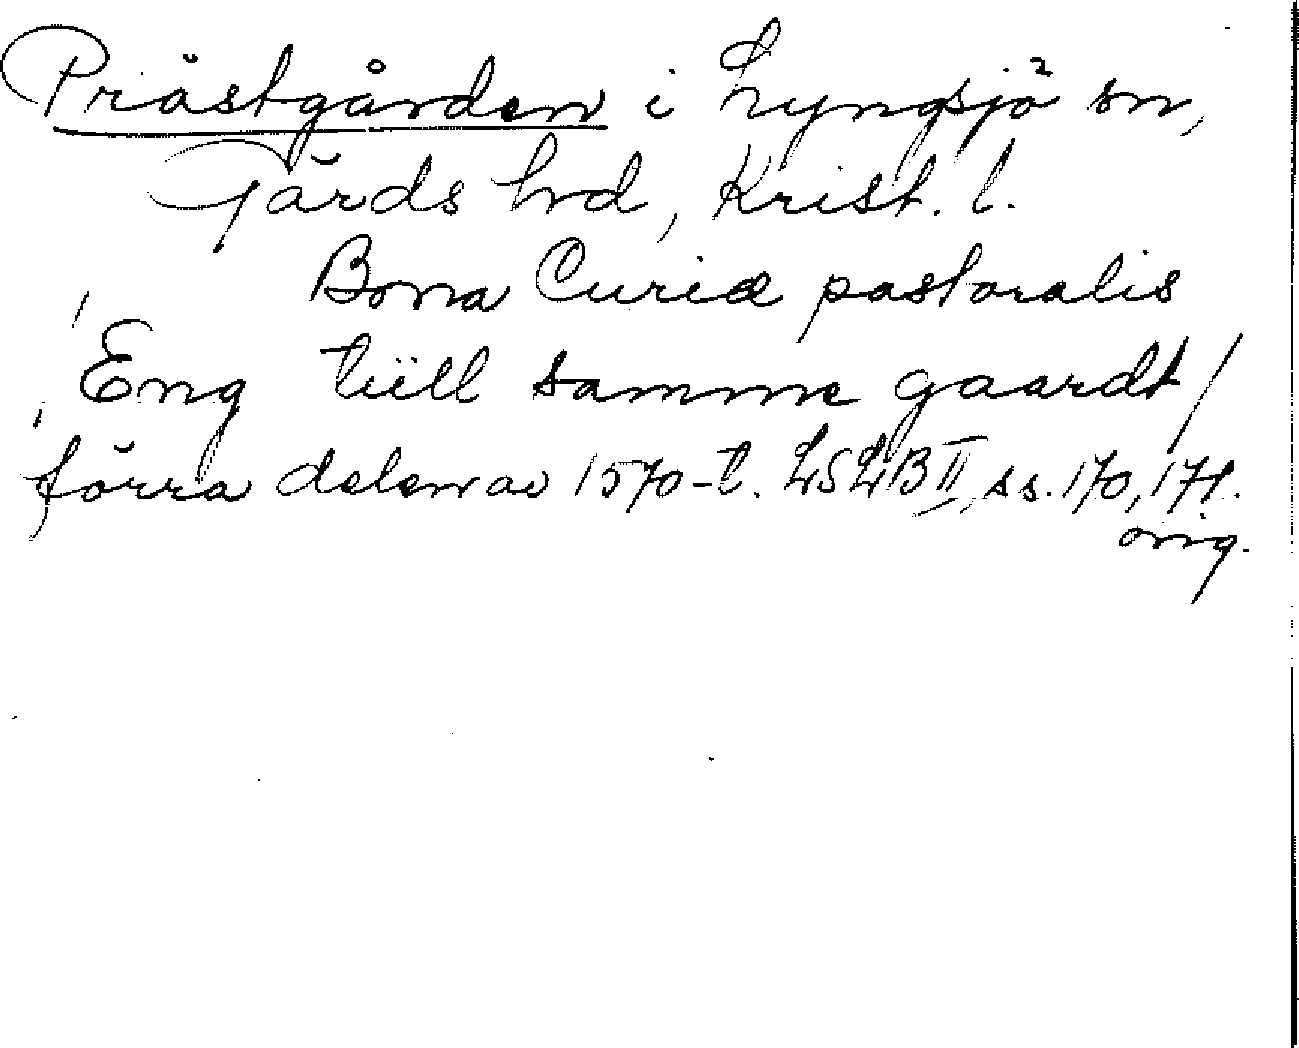 Prästgården i Lyngsjö sn,
Gärds hd, Krist. l.
Bona Curiæ pastoralis
Eng tiill samme gaardt/
förra delen av 1570-t. LSLB II, ss. 170, 171.
orig.